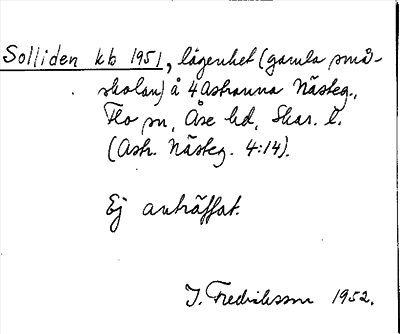 Solliden kb 1951, lägenhet (gamla små-
skolan) å 4 Astranna Nästeg.,
Flo sn, Åse hd, Skar. l.
(Ask. Nästeg. 4:14).
Ej anträffat.
J. Fredriksson 1952.